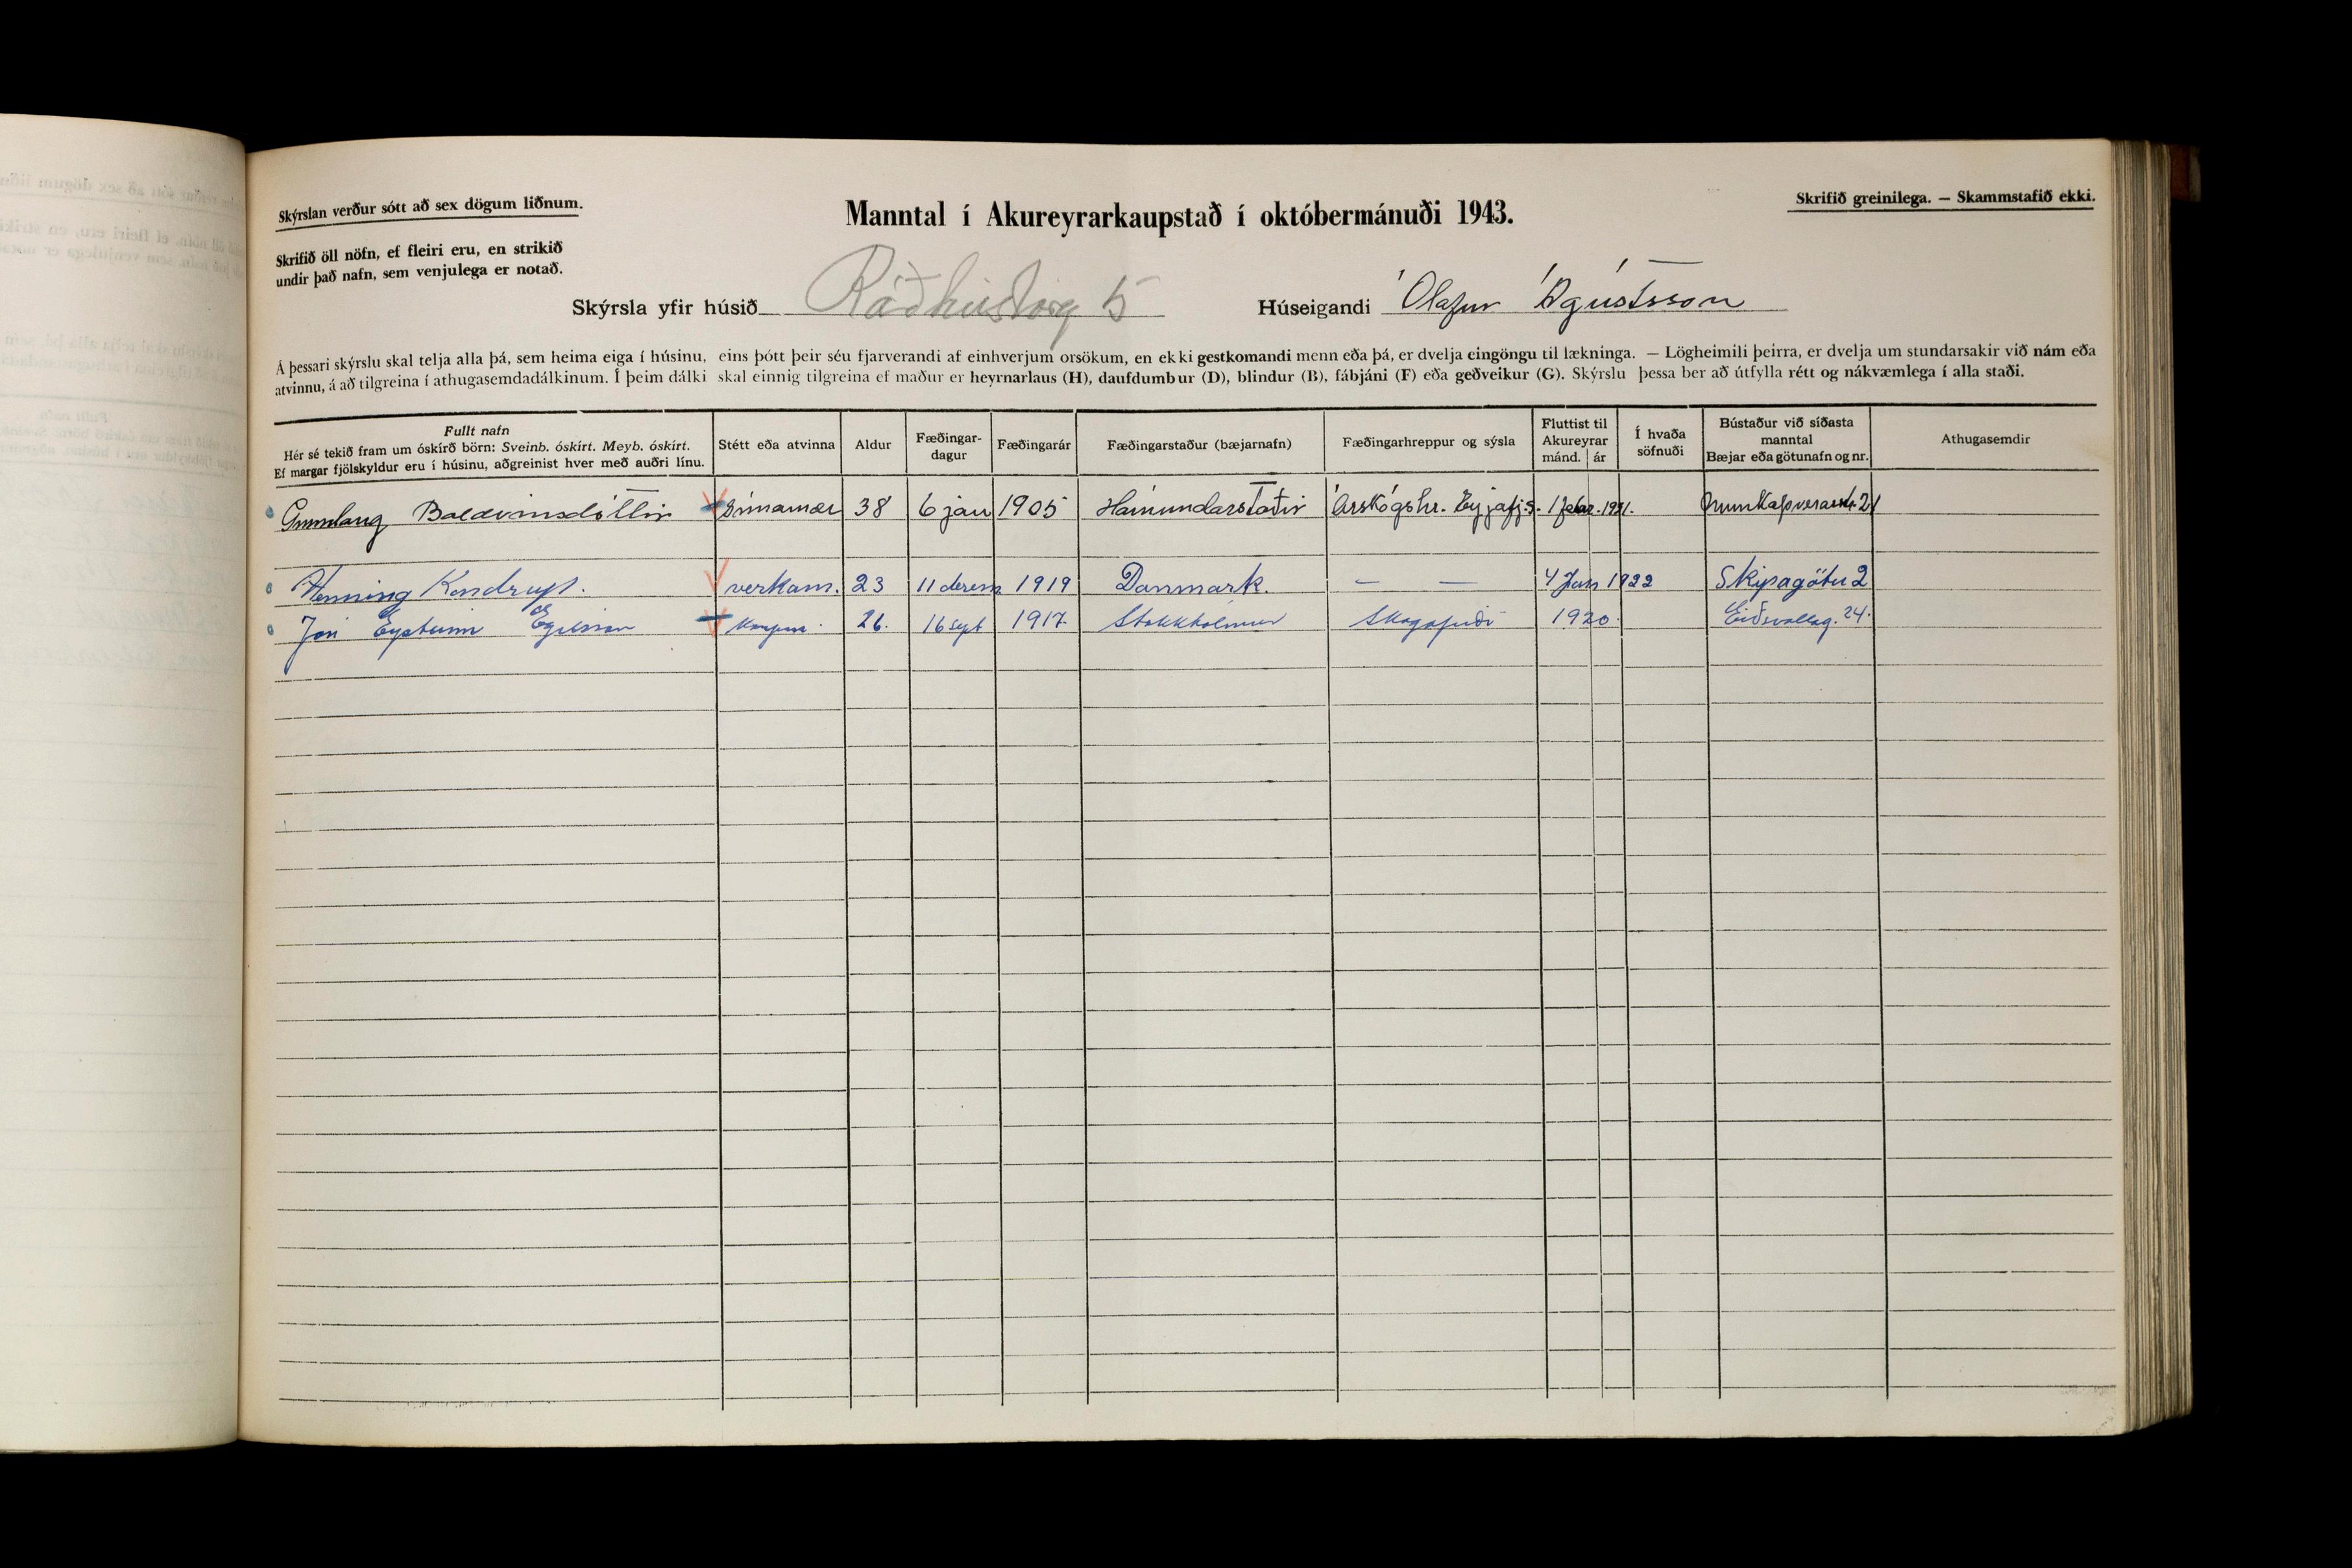 Skýrslan verður sótt að sex dögum liðnum.
Manntal í Akureyrarkaupstað í októbermánuði 1943.
Skrifið greinilega. — Skammstafið ekki.
Skrifið öll nöfn, ef fleiri eru, en strikið
undir það nafn, sem venjulega er notað.
Skýrsla yfir húsið Ráðhústorg 5 Húseigandi Ólafur Ágústsson
Á þessari skýrslu skal telja alla þá, sem heima eiga í húsinu, eins þótt þeir séu fjarverandi af einhverjum orsökum, en ekki gestkomandi menn eða þá, er dvelja eingöngu til lækninga. — Lögheimili þeirra, er dvelja um stundarsakir við nám eða
atvinnu, á að tilgreina í athugasemdadálkinum. Í þeim dálki skal einnig tilgreina ef maður er heyrnarlaus (H), daufdumbur (D), blindur (B), fábjáni (F) eða geðveikur (G). Skýrslu þessa ber að útfylla rétt og nákvæmlega í alla staði.
Fullt nafn
Hér sé tekið fram um óskírð börn: Sveinb. óskírt. Meyb. óskírt.
Ef margar fjölskyldur eru í húsinu, aðgreinist hver með auðri línu.
Stétt eða atvinna
Aldur
Fæðingar-
dagur
Fæðingarár
Fæðingarstaður (bæjarnafn)
Fæðingarhreppur og sýsla
Fluttist til
Akureyrar
mánd. ár
Í hvaða
söfnuði
Bústaður við síðasta
manntal
Bæjar eða götunafn og nr.
Athugasemdir
Gunnlaug Baldvinsdóttir símamær 38 6 jan 1905 Hámundarstaðir Árskógshr. Eyjafj.s. 1 febr. Munkaþverárstr. 21
Henning Kondrup. verkam. 23 11 desem 1919 Danmark. — — 4 Jan 1922 Skipagötu 2
Jón Eysteinn Egilsson 26. 16 sept 1917 Stokkhólmur Skagafirði 1920. Eiðsvallag. 24.